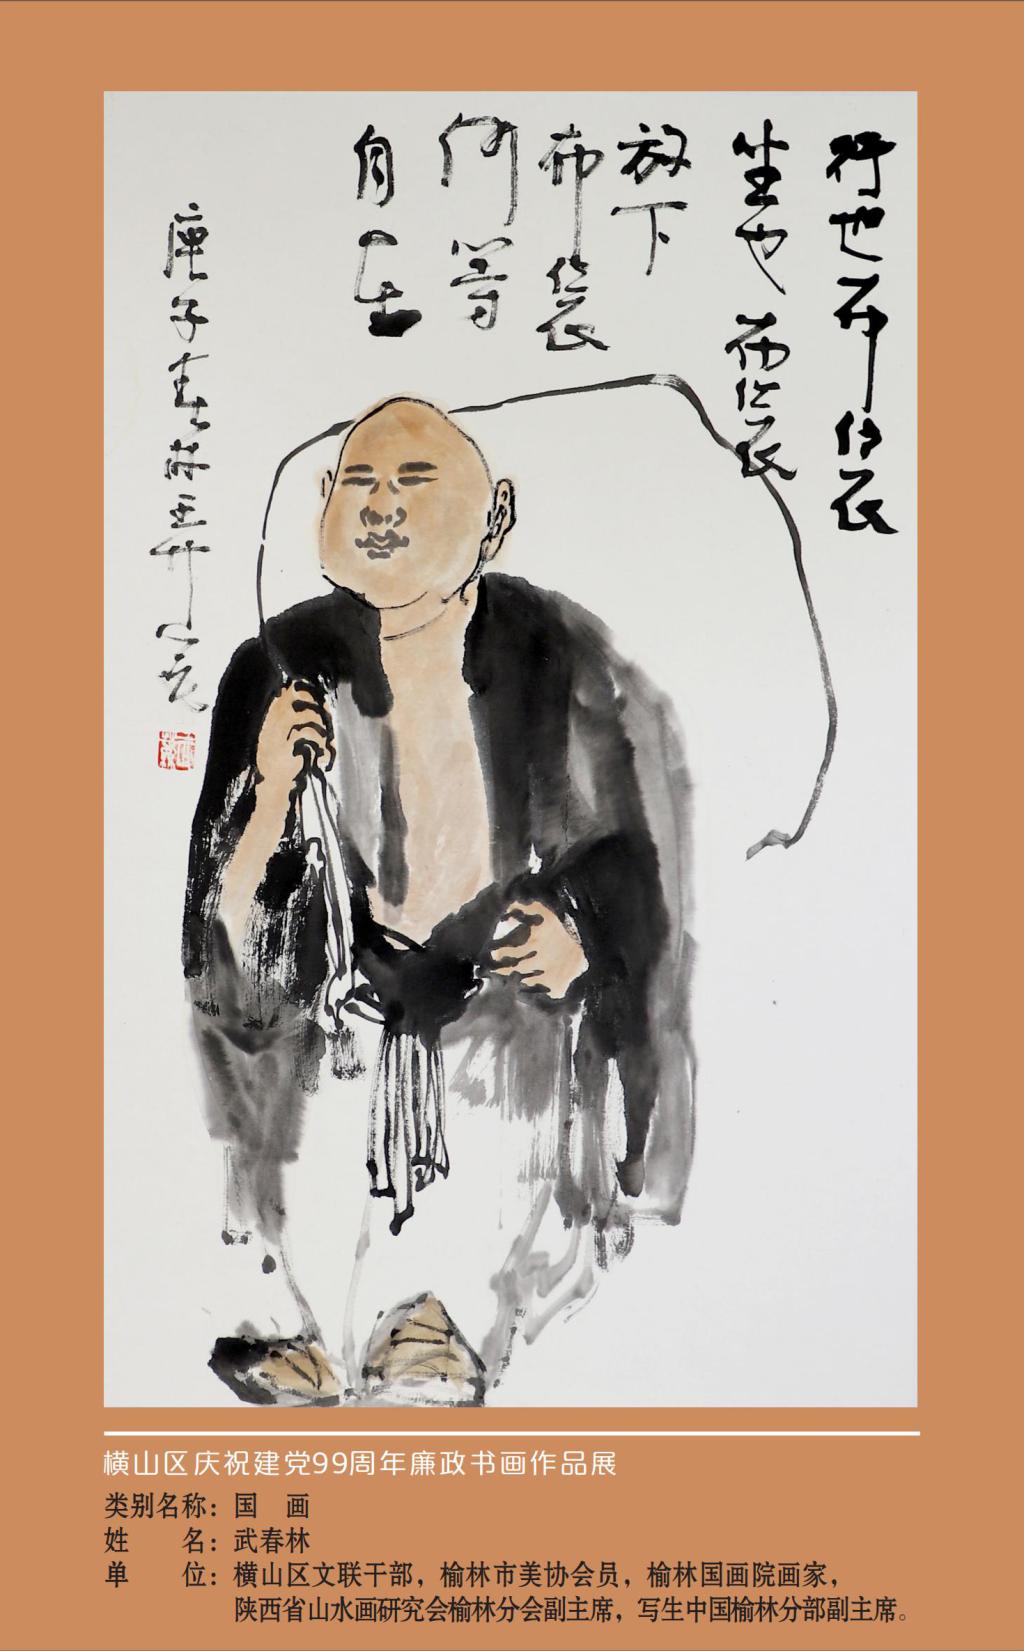 行也布袋
坐也布袋
放下
布袋
何等
自在
庚子春林
横山区庆祝建党99周年廉政书画作品展
类别名称：国　画
姓　　名：武春林
单　　位：横山区文联干部，榆林市美协会员，榆林国画院画家，
陕西省山水画研究会榆林分会副主席，写生中国榆林分部副主席。